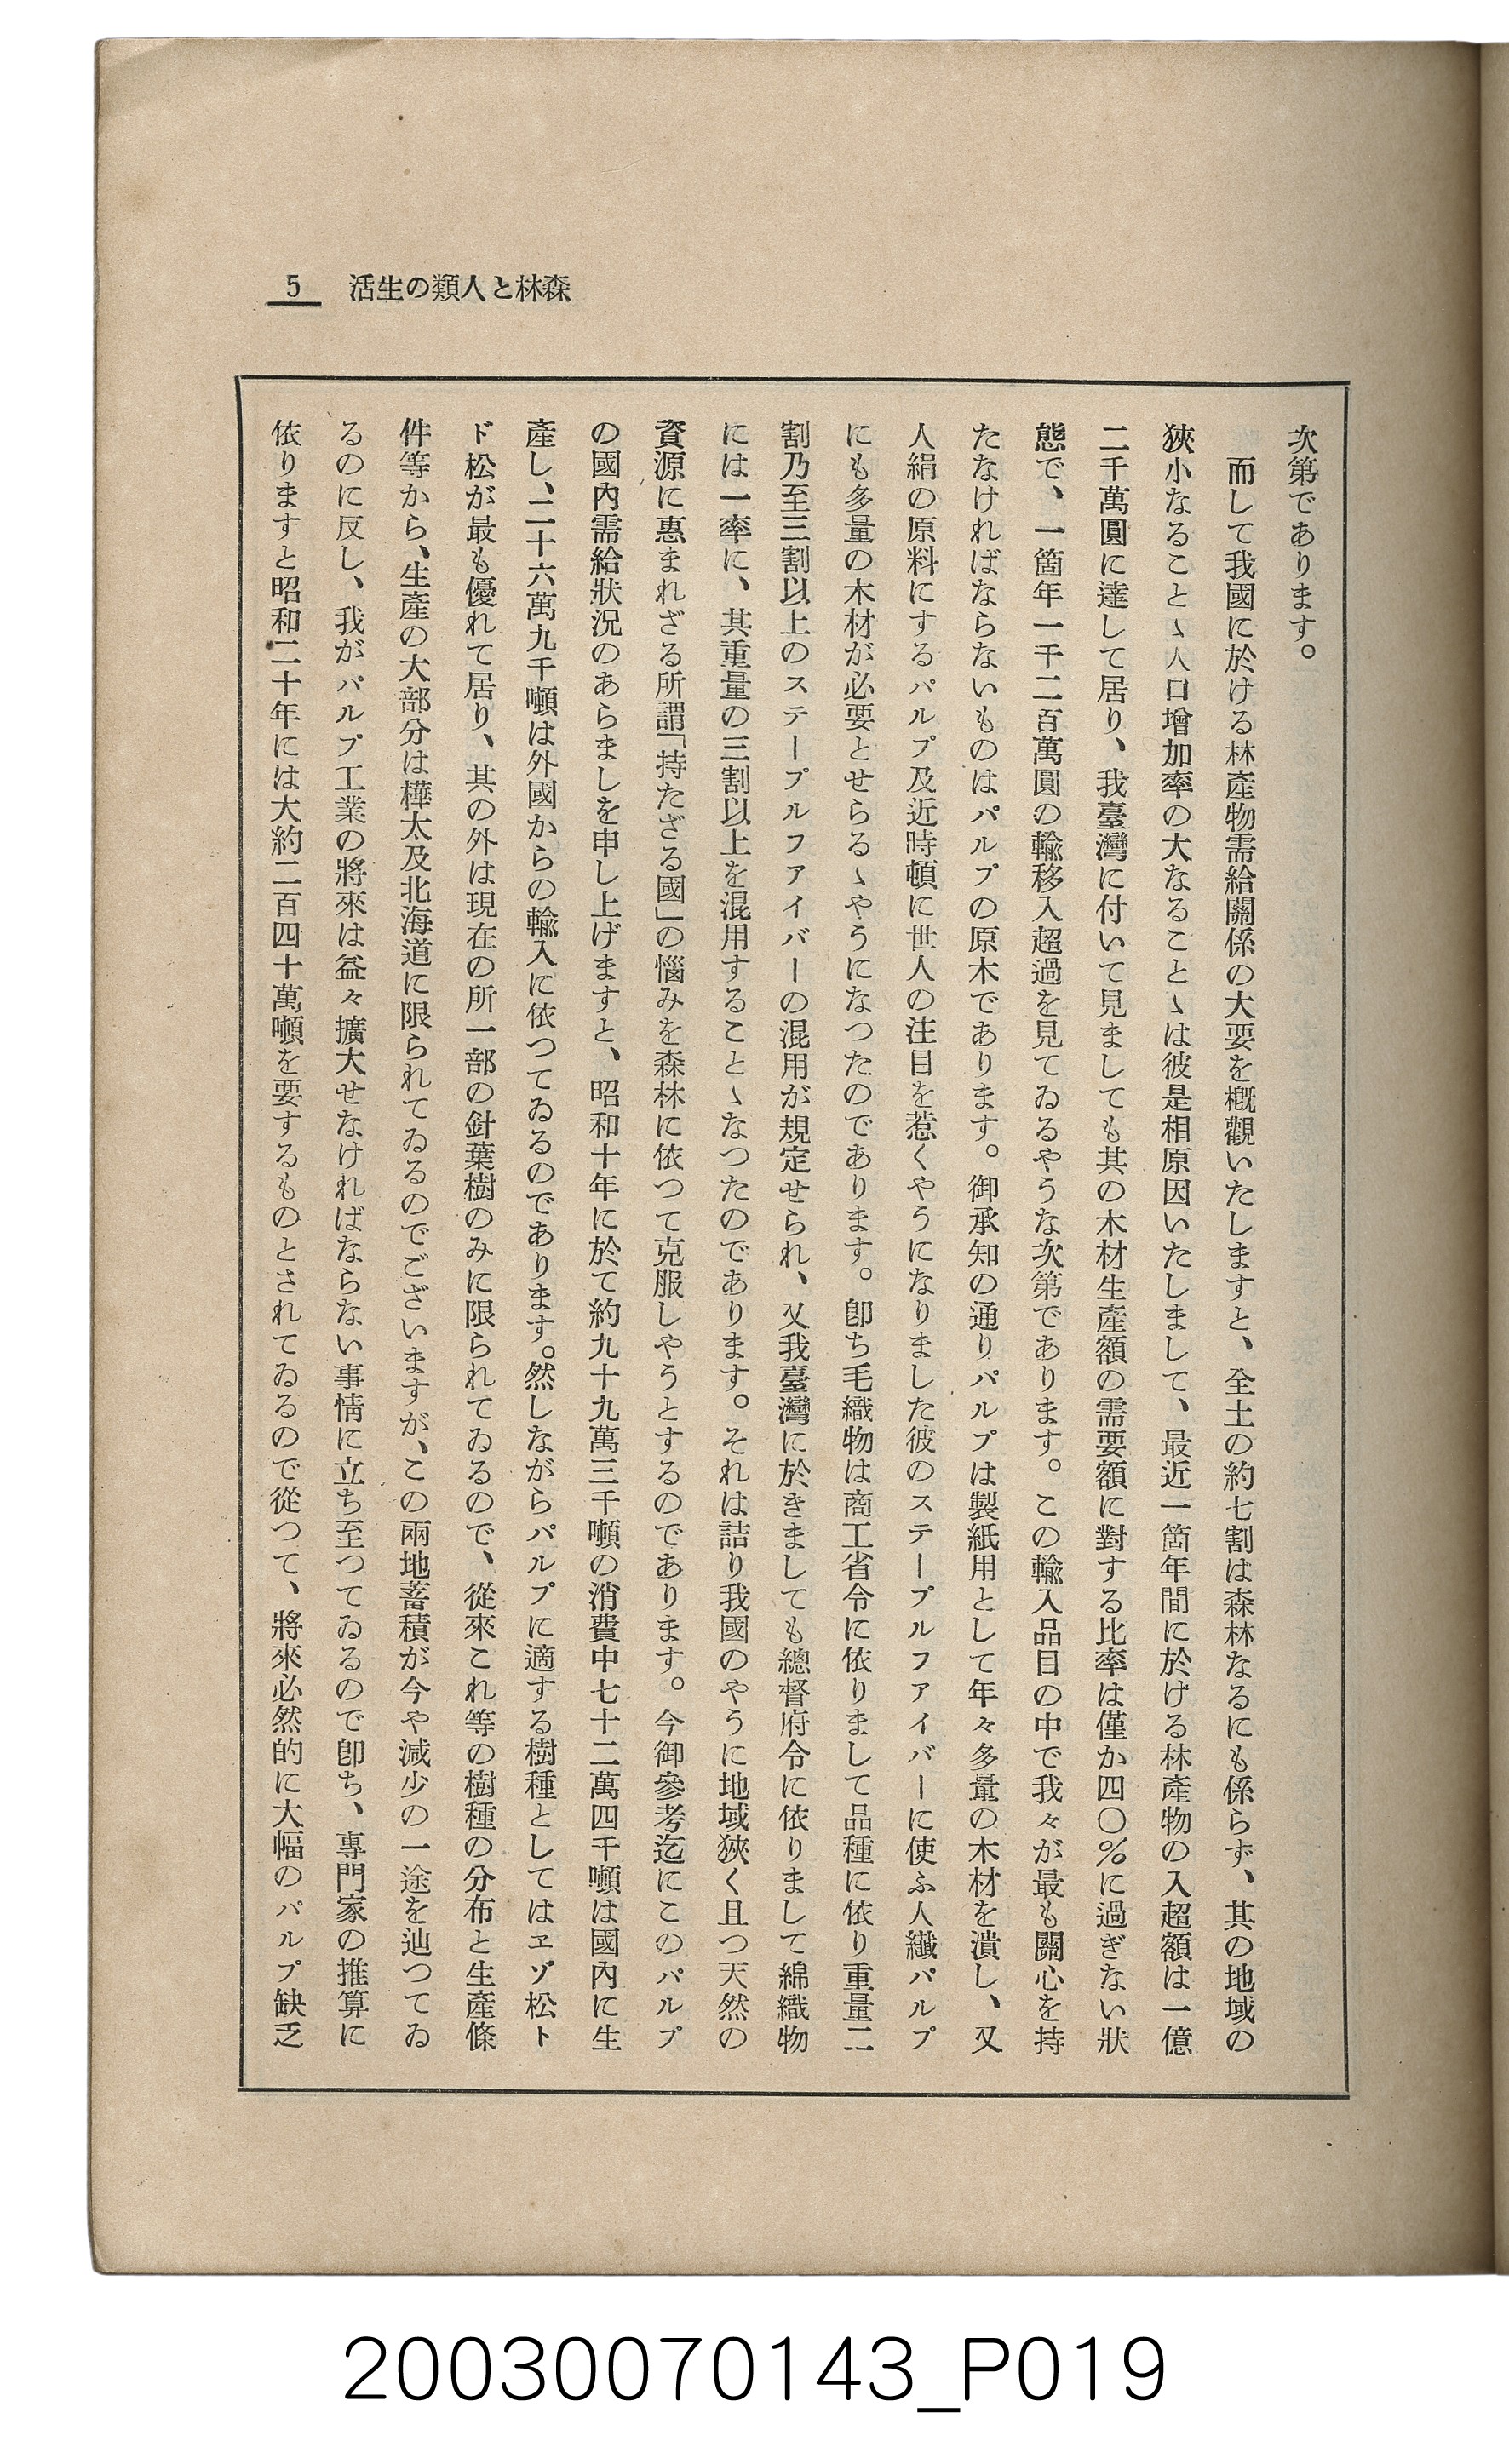 5 活生の類人と林森
次第であります。
而して我國に於ける林產物需給關係の大要を槪觀いたしますと、全土の約七割は森林なるにも係らず、其の地域の
狹小なることゝ人口增加率の大なることゝは彼是相原因いたしまして、最近一箇年間に於ける林產物の入超額は一億
二千萬圓に達して居り、我臺灣に付いて見ましても其の木材生產額の需要額に對する比率は僅か四〇％に過ぎない狀
態で、一箇年一千二百萬圓の輸移入超過を見てゐるやうな次第であります。この輸入品目の中で我々が最も關心を持
たなければならないものはパルプの原木であります。御承知の通りパルプは製紙用として年々多量の木材を潰し、又
人絹の原料にするパルプ及近時頓に世人の注目を惹くやうになりました彼のステープルファイバーに使ふ人纖パルプ
にも多量の木材が必要とせらるゝやうになつたのであります。卽ち毛織物は商工省令に依りまして品種に依り重量二
割乃至三割以上のステープルファイバーの混用が規定せられ、又我臺灣に於きましても總督府令に依りまして綿織物
には一率に、其重量の三割以上を混用することゝなつたのであります。それは詰り我國のやうに地域狹く且つ天然の
資源に惠まれざる所謂「持たざる國」の惱みを森林に依つて克服しやうとするのであります。今御參考迄にこのパルプ
の國內需給狀況のあらましを申し上げますと、昭和十年に於て約九十九萬三千噸の消費中七十二萬四千噸は國內に生
產し、二十六萬九千噸は外國からの輸入に依つてゐるのであります。然しながらパルプに適する樹種としてはヱゾ松ト
ド松が最も優れて居り、其の外は現在の所一部の針葉樹のみに限られてゐるので、從來これ等の樹種の分布と生產條
件等から、生產の大部分は樺太及北海道に限られてゐるのでございますが、この兩地蓄積が今や減少の一途を辿つてゐ
るのに反し、我がパルプ工業の將來は益々擴大せなければならない事情に立ち至つてゐるので卽ち、專門家の推算に
依りますと昭和二十年には大約二百四十萬噸を要するものとされてゐるので從つて、將來必然的に大幅のパルプ缺乏
20030070143_P019